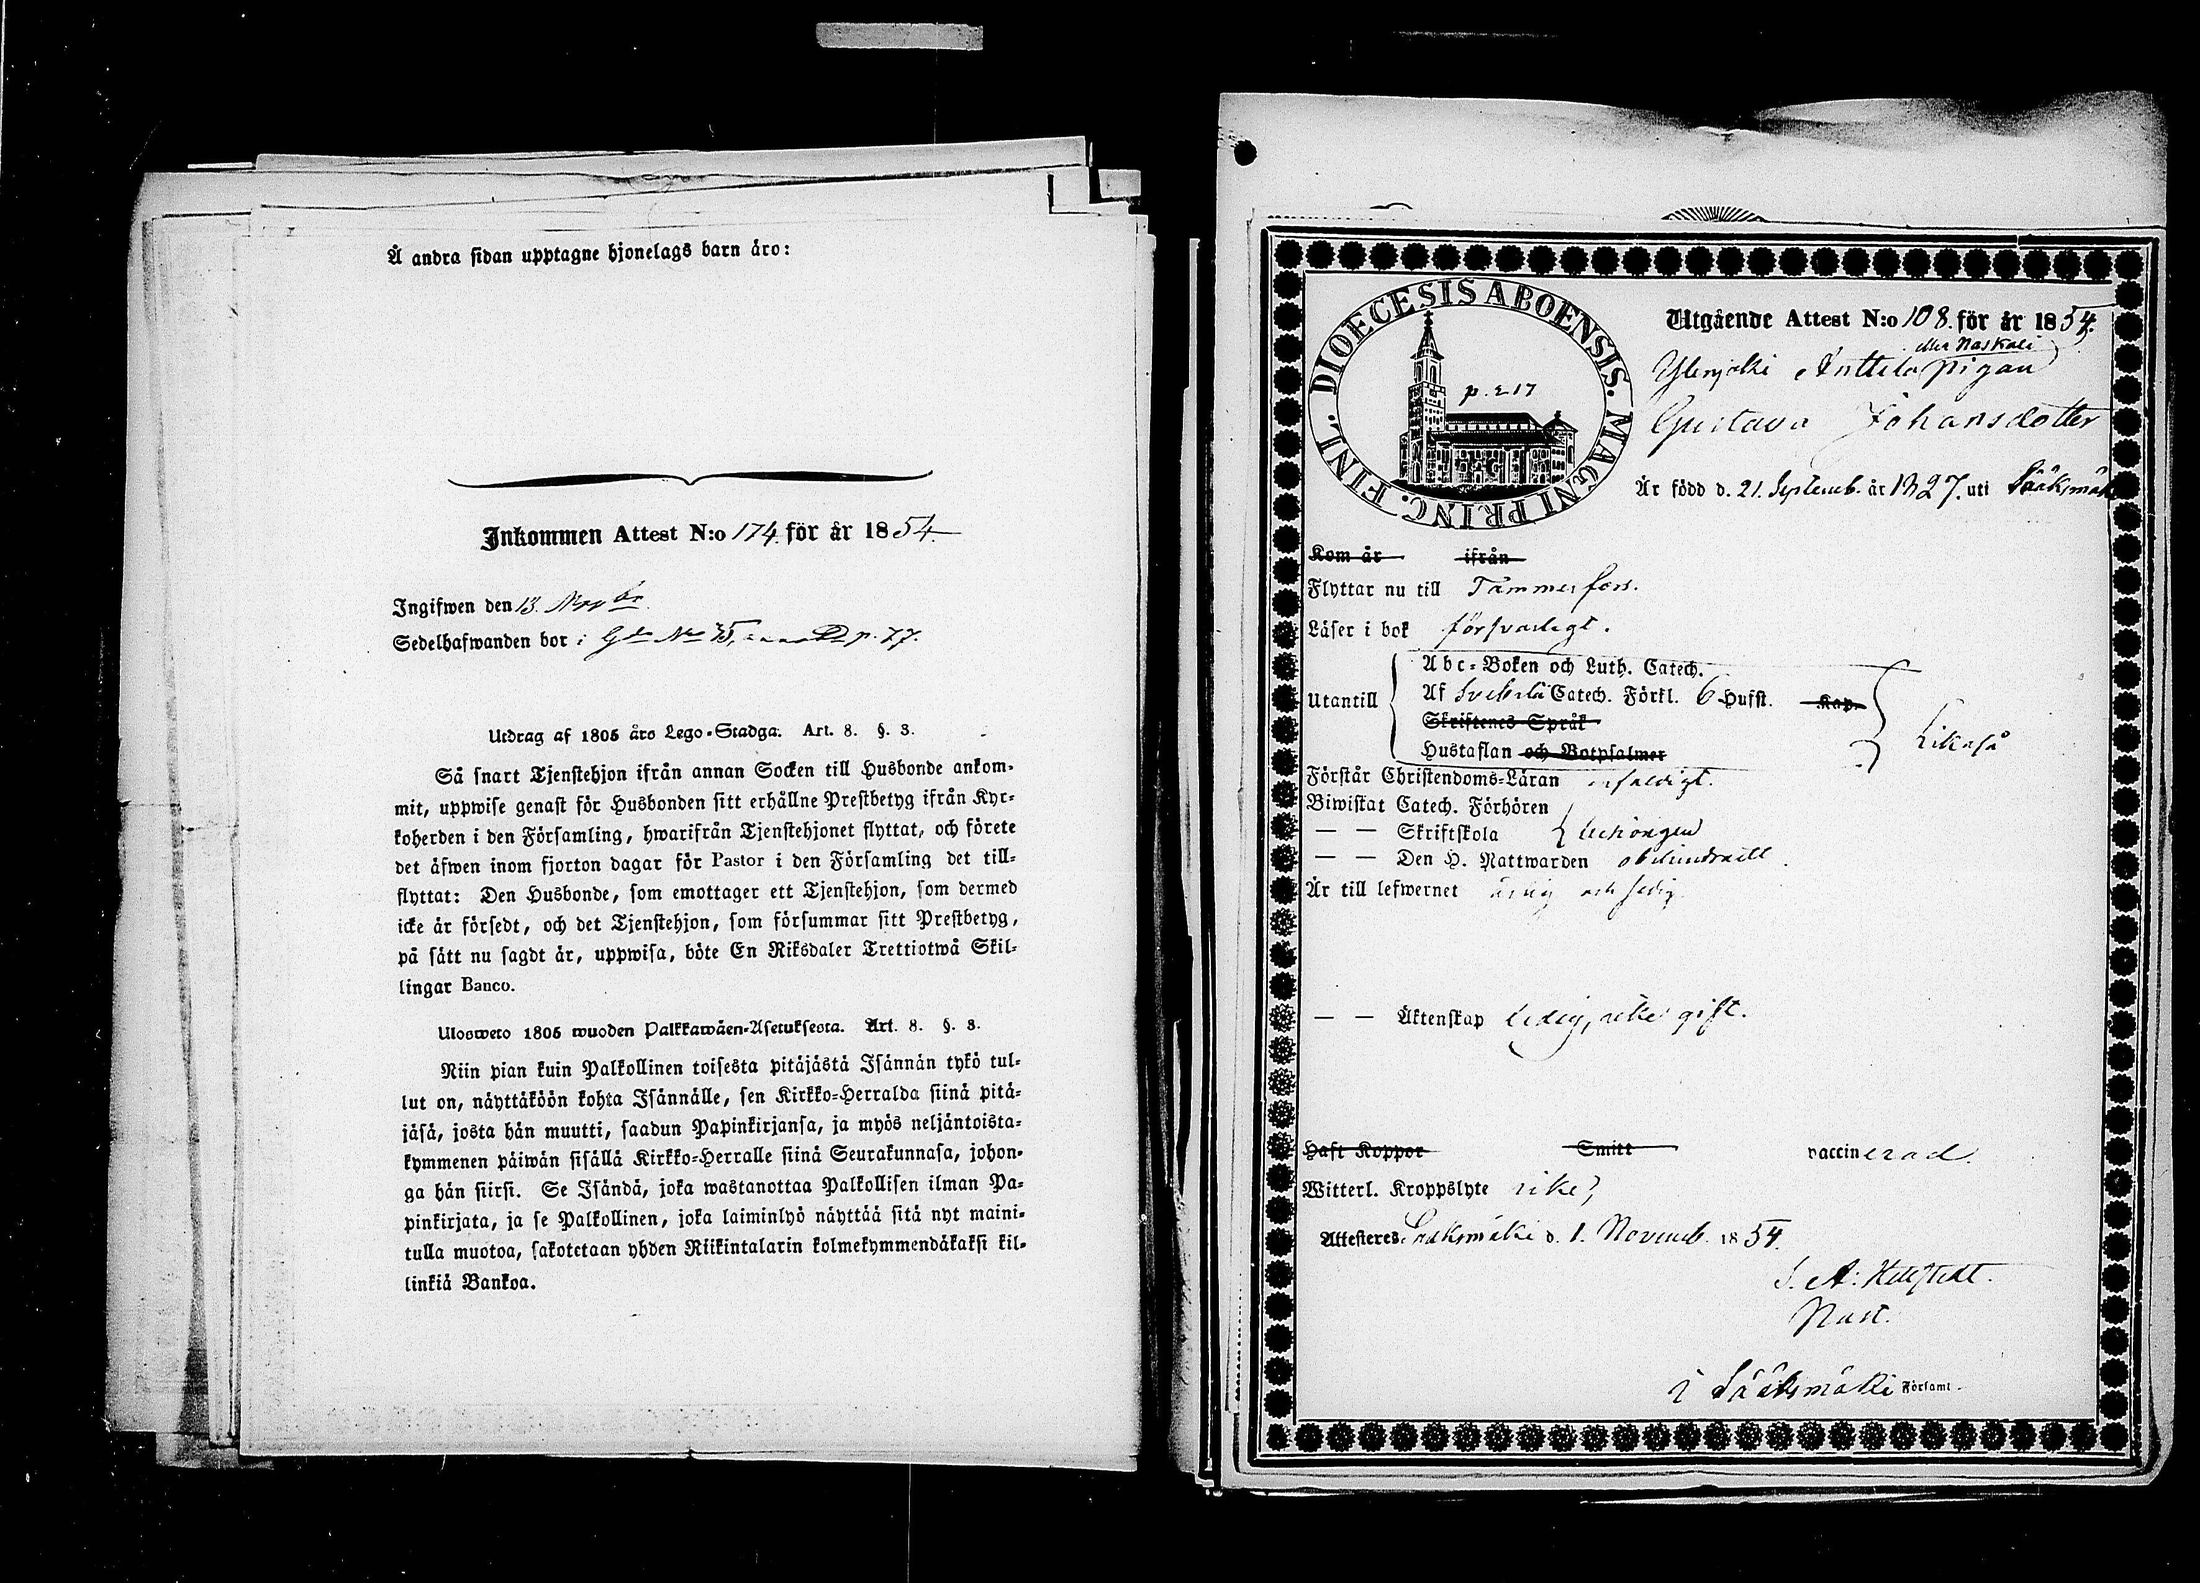 Å andra sidan upptagne hjonelags barn äro:
Inkommen Attest N:o 174. för år 1854.
Ingifwen den 13. Novbr
Sedelhafwanden bor i Gdn No 75, p. 77.
Utdrag af 1805 års Lego-Stadga. Art. 8. §. 3.
Så snart Tjenstehjon ifrån annan Socken till Husbonde ankom-
mit, uppwise genast för Husbonden sitt erhållne Prestbetyg ifrån Kyr-
koherden i den Församling, hwarifrån Tjenstehjonet flyttat, och förete
det äfwen inom fjorton dagar för Pastor i den Församling det till-
flyttat: Den Husbonde, som emottager ett Tjenstehjon, som dermed
icke är försedt, och det Tjenstehjon, som försummar sitt Prestbetyg,
på sätt nu sagdt är, uppwisa, böte En Riksdaler Trettiotwå Skil-
lingar Banco.
Ulosweto 1805 wuoden Palkkawäen-Asetuksesta. Art. 8. §. 3.
Niin pian kuin Palkollinen toisesta pitäjästä Isännän tykö tul-
lut on, näyttäköön kohta Isännälle, sen Kirkko-Herralda siinä pitä-
jäsä, josta hän muutti, saadun Papinkirjansa, ja myös neljäntoista-
kymmenen päiwän sisällä Kirkko-Herralle siinä Seurakunnasa, johon-
ga hän siirsi. Se Isändä, joka wastanottaa Palkollisen ilman Pa-
pinkirjata, ja se Palkollinen, joka laiminlyö näyttää sitä nyt maini-
tulla muotoa, sakotetaan yhden Riikintalarin kolmekymmendäkaksi kil-
linkiä Bankoa.
DIOECESIS ABOENSIS. MAGNI PRINC. FINL.
p. 217
Utgående Attest N:o 108. för år 1854.
eller Naskali
Ylenjoki Anttila pigan
Gustava Johansdotter
Är född d. 21. Septemb. år 1827. uti Sääksmäki
Kom år ifrån
Flyttar nu till Tammerfors.
Läser i bok försvarligt.
Utantill
Abc-Boken och Luth. Catech.
Af Svebelii Catech. Förkl. 6 Hufst. Kap.
Skriftenes Språk
Hustaflan och Botpsalmer
Likaså
Förstår Christendoms-Läran enfaldigt.
Biwistat Catech. Förhören
— — Skriftskola behörigen
— — Den H. Nattwarden obehindradt.
Är till lefwernet ärlig och sedig.
— — Äktenskap ledig, icke gift.
Haft Koppor Smitt vaccinerad.
Witterl. Kroppslyte icke,
Attesteres Sääksmäki d. 1. Novemb. 1854.
Past.
i Sääksmäki Församl.